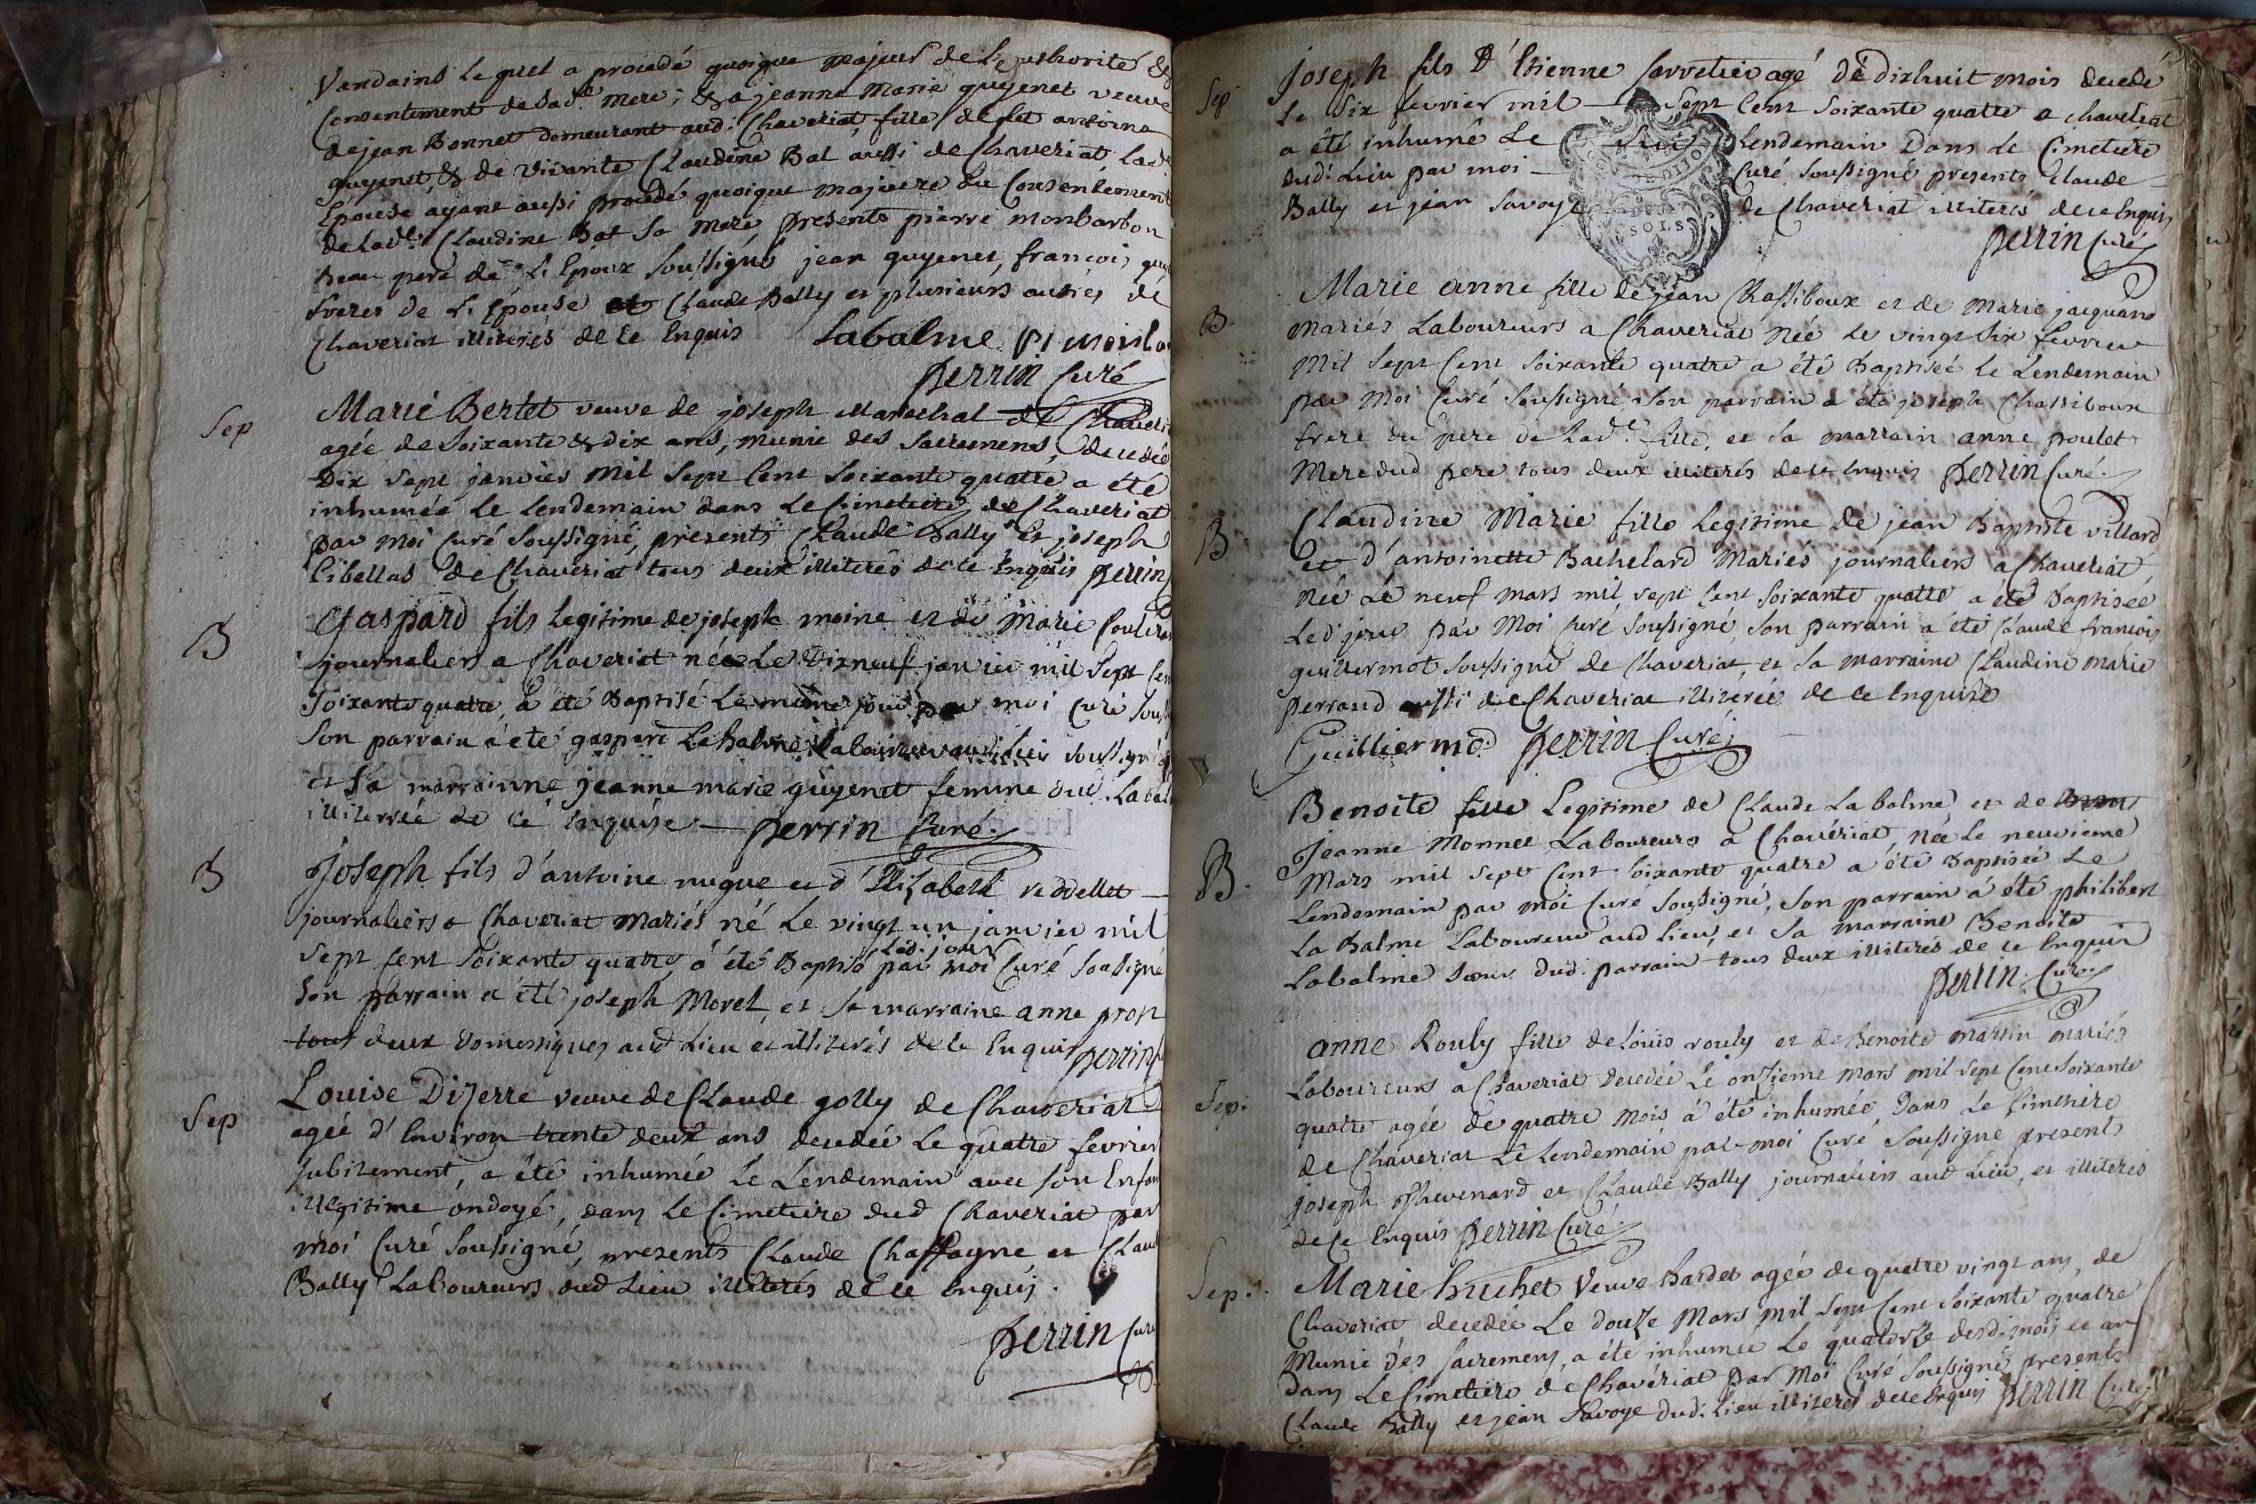 Vandains lequel a procedé quoique majeur de l'authorité &
Consentement de sad.e mere; & a jeanne Marie guyenet veuve
de jean Bonnet demeurant aud. Chaveriat, fille de fut antoine
guyenet, & de vivante Claudine Bat aussi de Chaveriat lad.
Epouse ayant aussi procedé quoique majeure du Consentement
de lad.e Claudine Bat sa mere presents pierre monbarbon
beau pere de L. Epoux soussigné jean guyenet, françois
freres de L. Epouse Claude Bally et plusieurs autres de
Chaveriat illiterés de ce Enquis Labalme
perrin Curé
Sep
Marie Bertet veuve de joseph Marechal de
agée de soixante & dix ans, munie des sacremens, decedée
Dix sept janvier mil sept Cent soixante quatre a été
inhumée le lendemain dans le Cimetiere de Chaveriat
par moi Curé soussigné, presents Claude Bally et joseph
Libellas de Chaveriat tous deux illiterés de ce Enquis perrin
B
Gaspard fils legitime de joseph moine et de Marie
journaliers a Chaveriat née Le Dixneuf janvier mil sept
soixante quatre, a été Baptisé Le même jour par moi Curé
son parrain a eté gaspard Labalme Laboureur aud. Lieu
et sa marrainne jeanne marie guyenet femme dud.
illiterrée de ce enquise perrin Curé
B
Joseph fils d'antoine nugue et d'Elizabeth reddellet
journaliers a Chaveriat Mariés né Le vingt un janvier mil
Led. jour
sept Cent soixante quatre, a été Baptisé par moi Curé soussigné
son parrain a été joseph Morel, et sa marraine anne
tous deux domestiques aud Lieu et illiterés de ce Enquis perrin
Sep
Louise Dizerre veuve de Claude golly de Chaveriat
agée d'Environ trente deux ans decedée Le quatre fevrier
subitement, a été inhumée Le Lendemain avec son Enfan
illegitime ondoyé, dans Le Cimetiere dud Chaveriat par
moi Curé soussigné, presents Claude Chaffagne et Claud
Bally Laboureurs dud Lieu illiterés de ce enquis.
perrin Curé
Sep.
Joseph fils d'Etienne sarvetier agé de dixhuit mois decedé
le six fevrier mil sept Cent soixante quatre a chaveriat
a été inhumé Le lendemain Dans Le Cimetiere
SOLS
dud. Lieu par moi Curé soussigné presents Claude
Bally et jean Savoye de Chaveriat illiterés de ce Enquis
perrin Curé
B.
Marie anne fille de jean Chassiboux et de Marie jacquand
mariés Laboureurs a Chaveriat née Le vingt six fevrier
mil sept Cent soixante quatre a été Baptisée Le Lendemain
par moi Curé soussigné son parrain a été joseph Chassiboux
frere du pere de Lad.e fille, et sa marrain anne poulet
Mere dud pere tous deux illiterés de ce Enquis perrin Curé.
B
Claudine Marie fille legitime de jean Baptiste villard
et d'antoinette Bachelard Mariés journaliers a Chaveriat,
née Le neuf mars mil sept Cent soixante quatre a été Baptisée
Led. jour par Moi Curé soussigné, son parrain a été Claude francois
guillermot soussigné de Chaveriat, et sa marraine Claudine marie
perraud aussi de Chaveriat illiterée de ce Enquise
Guilliermod perrin Curé
B.
Benoite fille Legitime de Claude La balme et de
Jeanne Monnet Laboureurs a Chavériat, née le neuvieme
Mars mil sept Cent soixante quatre a été Baptisée Le
Lendemain par moi Curé soussigné, son parrain a été philibert
La Balme Laboureur aud Lieu, et sa marraine Benoite
Labalme soeur dud. parrain tous deux illiterés de ce Enquis
perrin Curé
Sep:
anne Rouly fille de Loüis rouly et de Benoite Martin mariés
Laboureurs a Chaveriat decedée Le onzieme mars mil sept Cent soixante
quatre agée de quatre mois a été inhumée, Dans Le Cimetiere
de Chaveriat Le lendemain par moi Curé soussigné presents
joseph Thevenard et Claude Bally journaliers aud Lieu, et illiterés
de ce Enquis perrin Curé
Sep.
Marie huchet Veuve Bardet agée de quatre vingt ans, de
Chaveriat decedée Le douze Mars mil sept Cent soixante quatre
Munie dés sacremens, a été inhumée Le quatorze desd. mois et an
Dans Le Cimetiere de Chavériat par Moi Curé soussigné presents
Claude Bally et jean Savoye dud. Lieu illiterés de ce Enquis perrin Curé